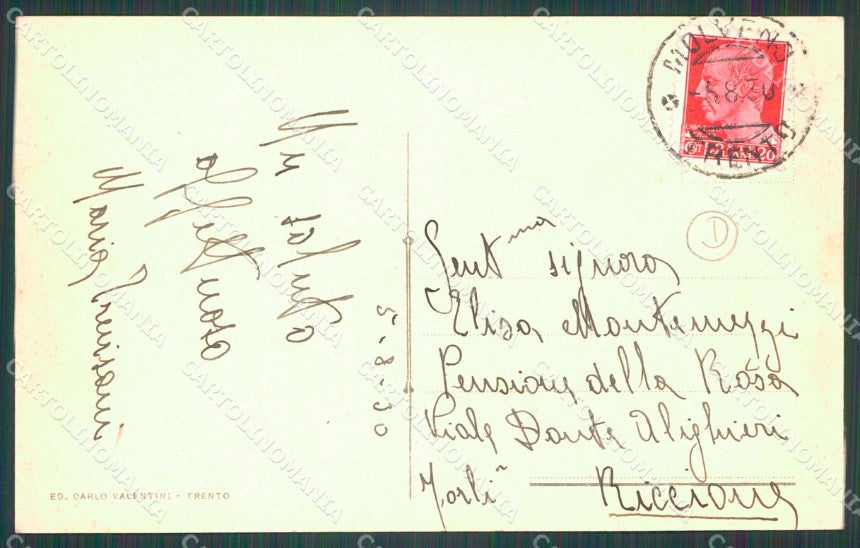 Un saluto
affettuoso
Maria
5-8-30
Gent.ma signora
Elisa Montemezzi
Pensione della Rosa
Viale Dante Alighieri
Forlì Riccione
D
MOLVENO
5.8.30
TRENTO
20
ED. CARLO VALENTINI - TRENTO
CARTOLINOMANIA